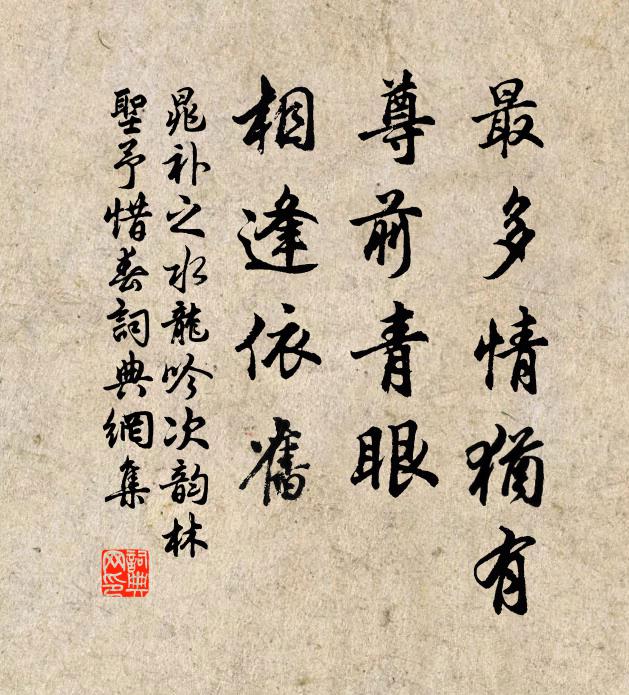 最多情猶有
尊前青眼
相逢依舊
晁补之水龍吟次韵林
聖予惜春詞典網集
詞典
网印